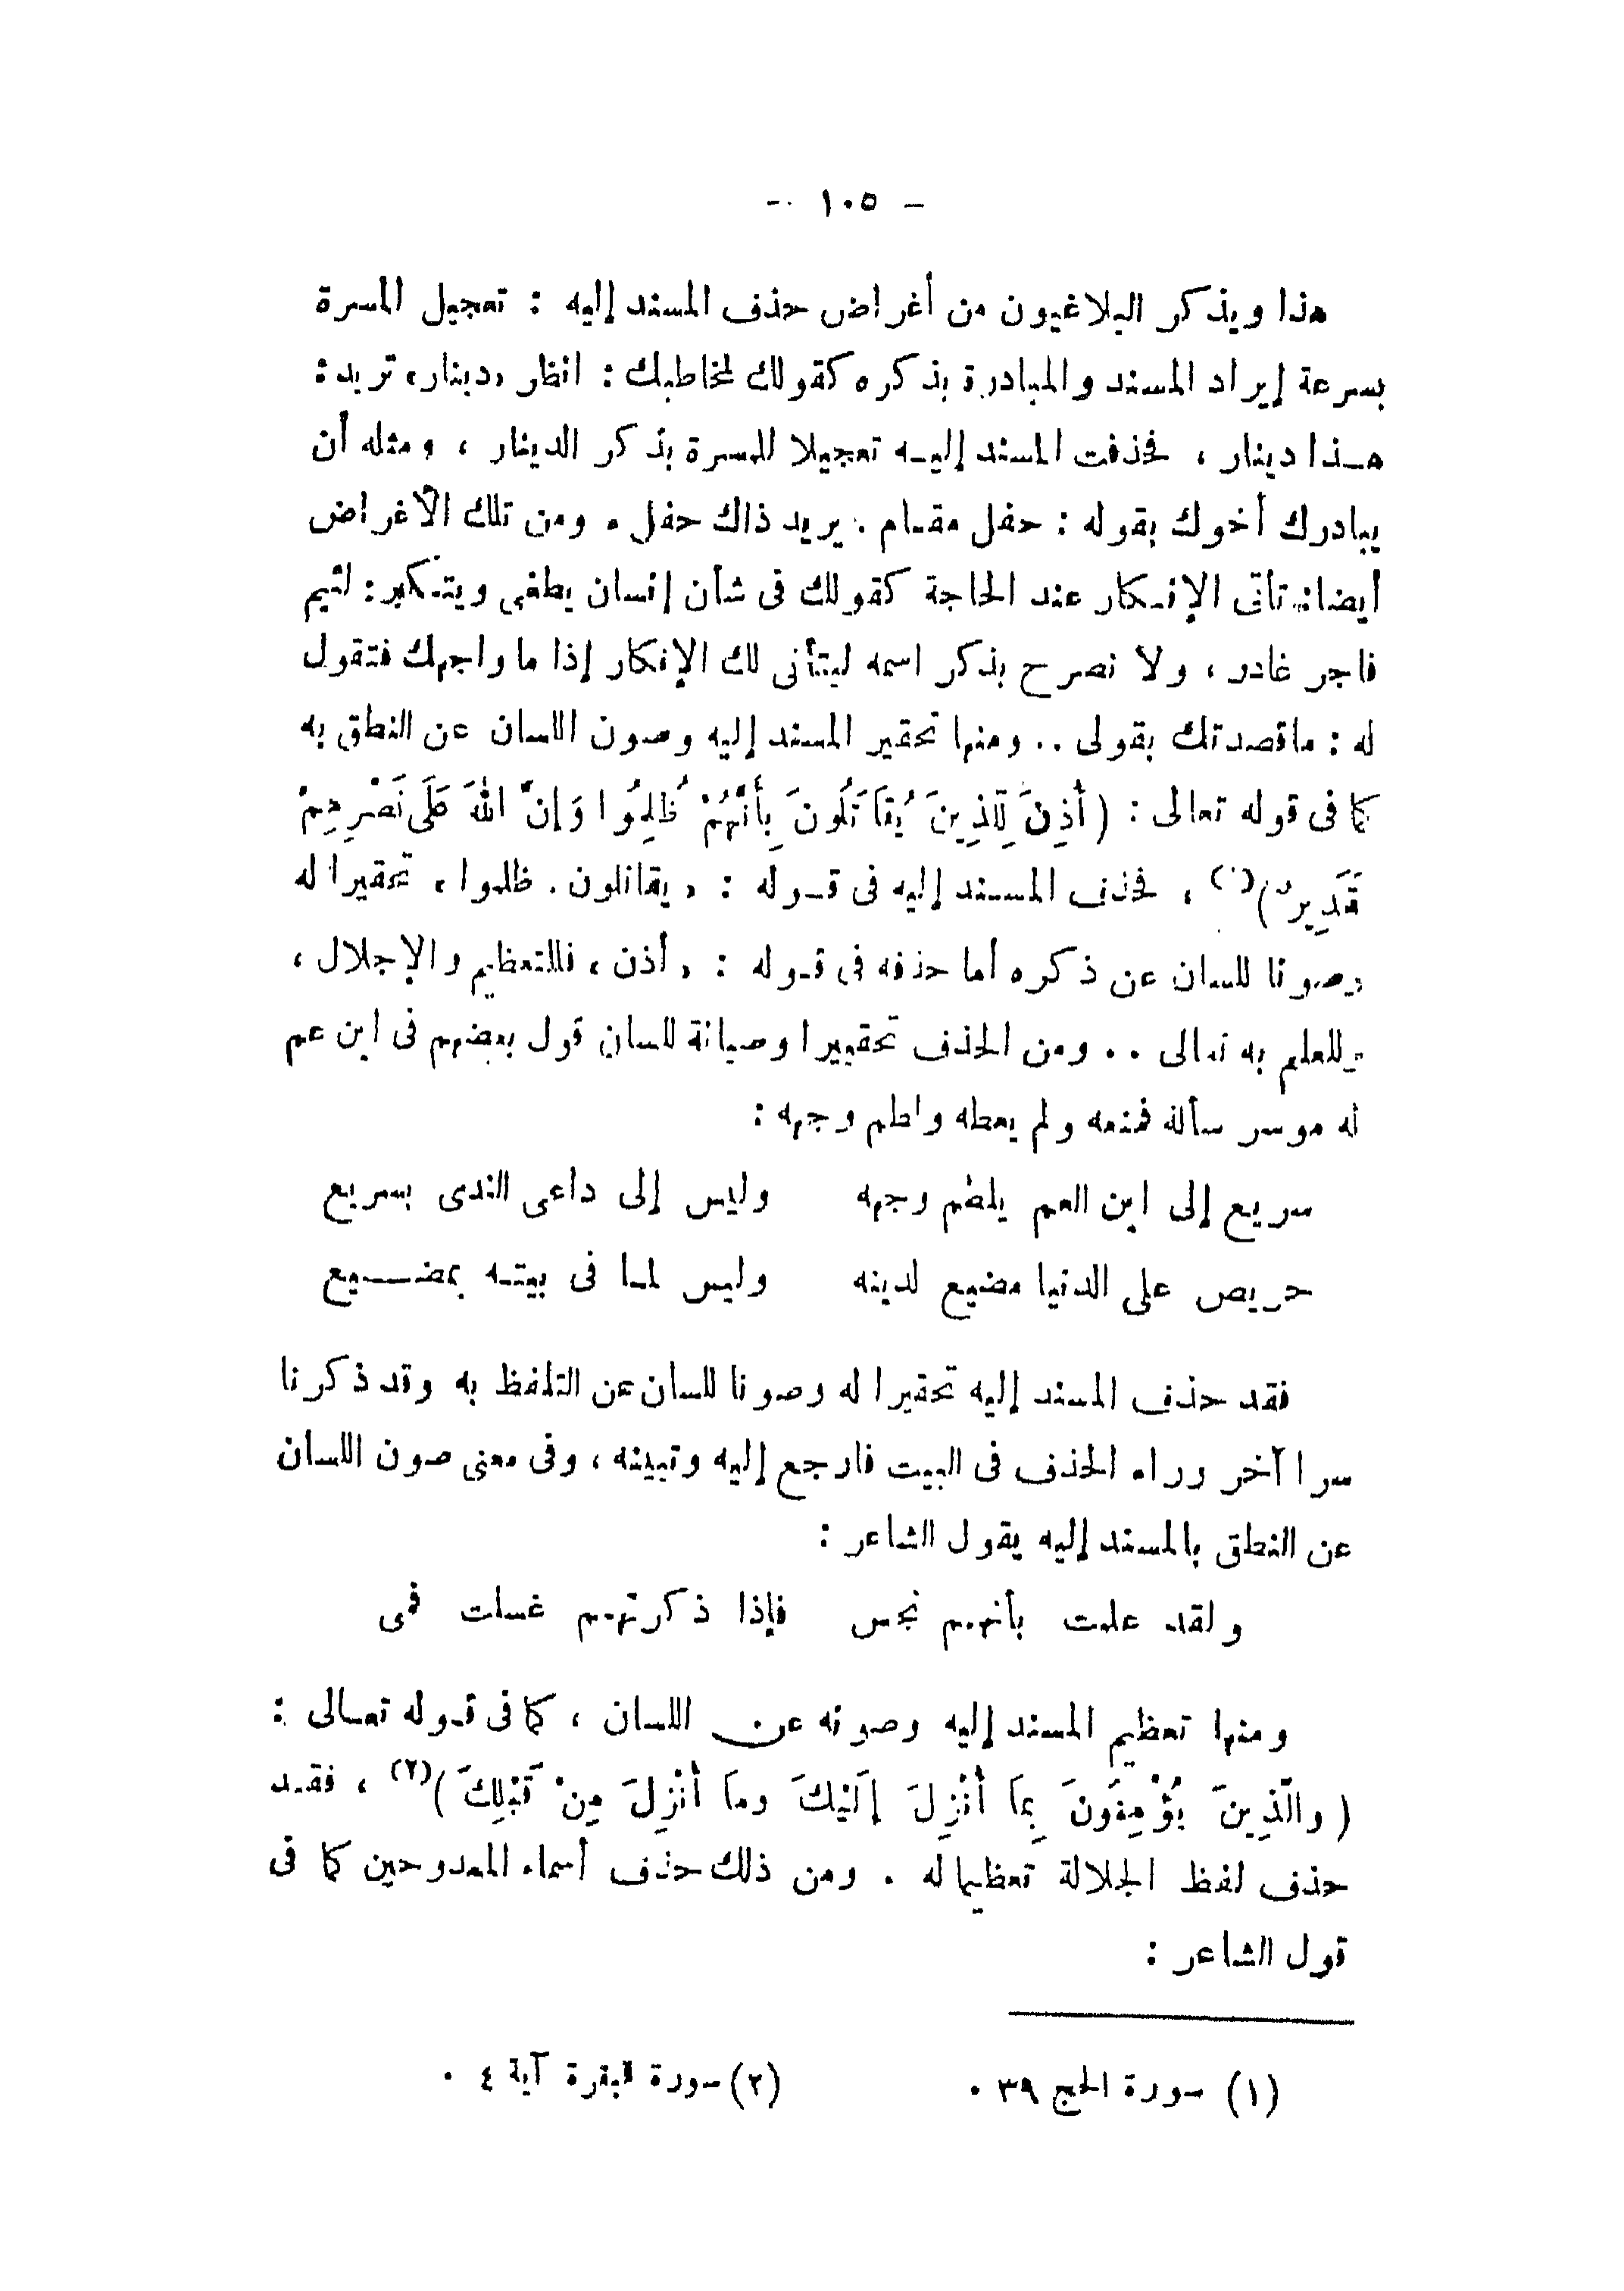 - ١٠٥ -
هذا ويذكر البلاغيون من أغراض حذف المسند إليه : تعجيل المسرة
بسرعة إيراد المسند والمبادرة بذكره كقولك لمخاطبك : انظر «دينار» تريد :
هذا دينار ، فحذفت المسند إليه تعجيلا للمسرة بذكر الدينار ، ومثله أن
يبادرك أخوك بقوله : حفل مقام . يريد ذاك حفل . ومن تلك الأغراض
أيضا: تأتى الإنكار عند الحاجة كقولك فى شأن إنسان يطغى ويتكبر : لئيم
فاجر غادر ، ولا نصرح بذكر اسمه ليتأنى لك الإنكار إذا ما واجهك فتقول
له : ماقصدتك بقولى .. ومنها تحقير المسند إليه وصون اللسان عن النطق به
كما فى قوله تعالى : ( أُذِنَ لِلَّذِينَ يُقَاتَلُونَ بِأَنَّهُمْ ظُلِمُوا وَإِنَّ اللهَ عَلَى نَصْرِهِمْ
لَقَدِيرٌ )(١) ، فحذف المسند إليه فى قوله : « يقاتلون . ظلموا » تحقيرا له
وصونا للسان عن ذكره أما حذفه فى قوله : « أذن » فللتعظيم والإجلال ،
وللعلم به تعالى .. ومن الحذف تحقييرا وصيانة للسان قول بعضهم فى ابن عم
له موسر سأله فمنعه ولم يعطه ولطم وجهه :
سريع إلى ابن العم يلطم وجهه وليس إلى داعى الندى بسريع
حريص على الدنيا مضيع لدينه وليس لما فى بيته بمضيع
فقد حذف المسند إليه تحقيرا له وصونا للسان عن التلفظ به وقد ذكرنا
سرا آخر وراء الحذف فى البيت فارجع إليه وتبينه ، وفى معنى صون اللسان
عن النطق بالمسند إليه يقول الشاعر :
ولقد علمت بأنهم نجس فإذا ذكرتهم غسلت فمى
ومنها تعظيم المسند إليه وصونه عن اللسان ، كما فى قوله تعالى :
( والَّذِينَ يُؤْمِنُونَ بِمَا أُنْزِلَ إِلَيْكَ وما أُنْزِلَ مِنْ قَبْلِكَ )(٢) ، فقد
حذف لفظ الجلالة تعظيما له . ومن ذلك حذف أسماء الممدوحين كما فى
قول الشاعر :
(١) سورة الحج ٣٩ . (٢) سورة البقرة آية ٤ .